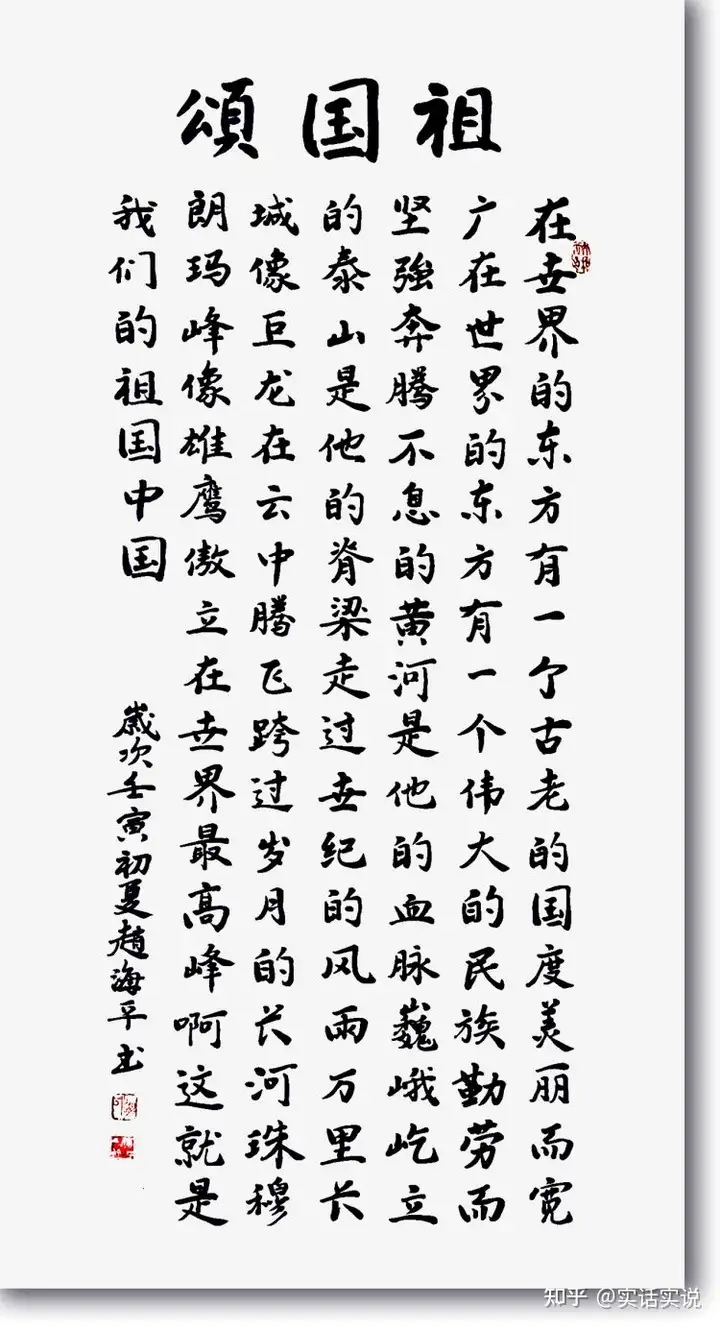 祖国頌
在世界的东方有一个古老的国度美丽而宽
广在世界的东方有一个伟大的民族勤劳而
坚強奔腾不息的黄河是他的血脉巍峨屹立
的泰山是他的脊梁走过世纪的风雨万里长
城像巨龙在云中腾飞跨过岁月的长河珠穆
朗玛峰像雄鹰傲立在世界最高峰啊这就是
我们的祖国中国
歲次壬寅初夏趙海平书
知乎 @实话实说